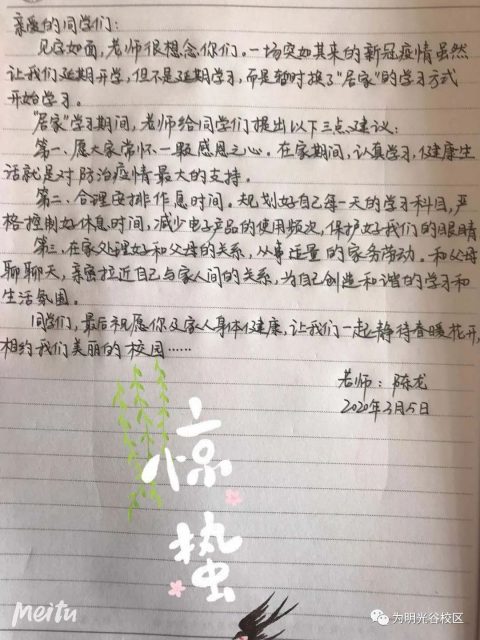 亲爱的同学们：
见字如面，老师很想念你们。一场突如其来的新冠疫情虽然
让我们延期开学，但不是延期学习，而是暂时换了"居家"的学习方式
开始学习。
"居家"学习期间，老师给同学们提出以下三点建议：
第一、愿大家常怀一颗感恩之心。在家期间，认真学习，健康生
活就是对防治疫情最大的支持。
第二、合理安排作息时间。规划好自己每一天的学习科目，严
格控制好休息时间，减少电子产品的使用频次，保护好我们的眼睛
第三、在家处理好和父母的关系，从事适量的家务劳动。和父母
聊聊天，亲密拉近自己与家人间的关系，为自己创造和谐的学习和
生活氛围。
同学们，最后祝愿你及家人身体健康，让我们一起静待春暖花开，
相约我们美丽的校园……
老师：陈龙
2020年3月5日
惊
蛰
meitu
为明光谷校区